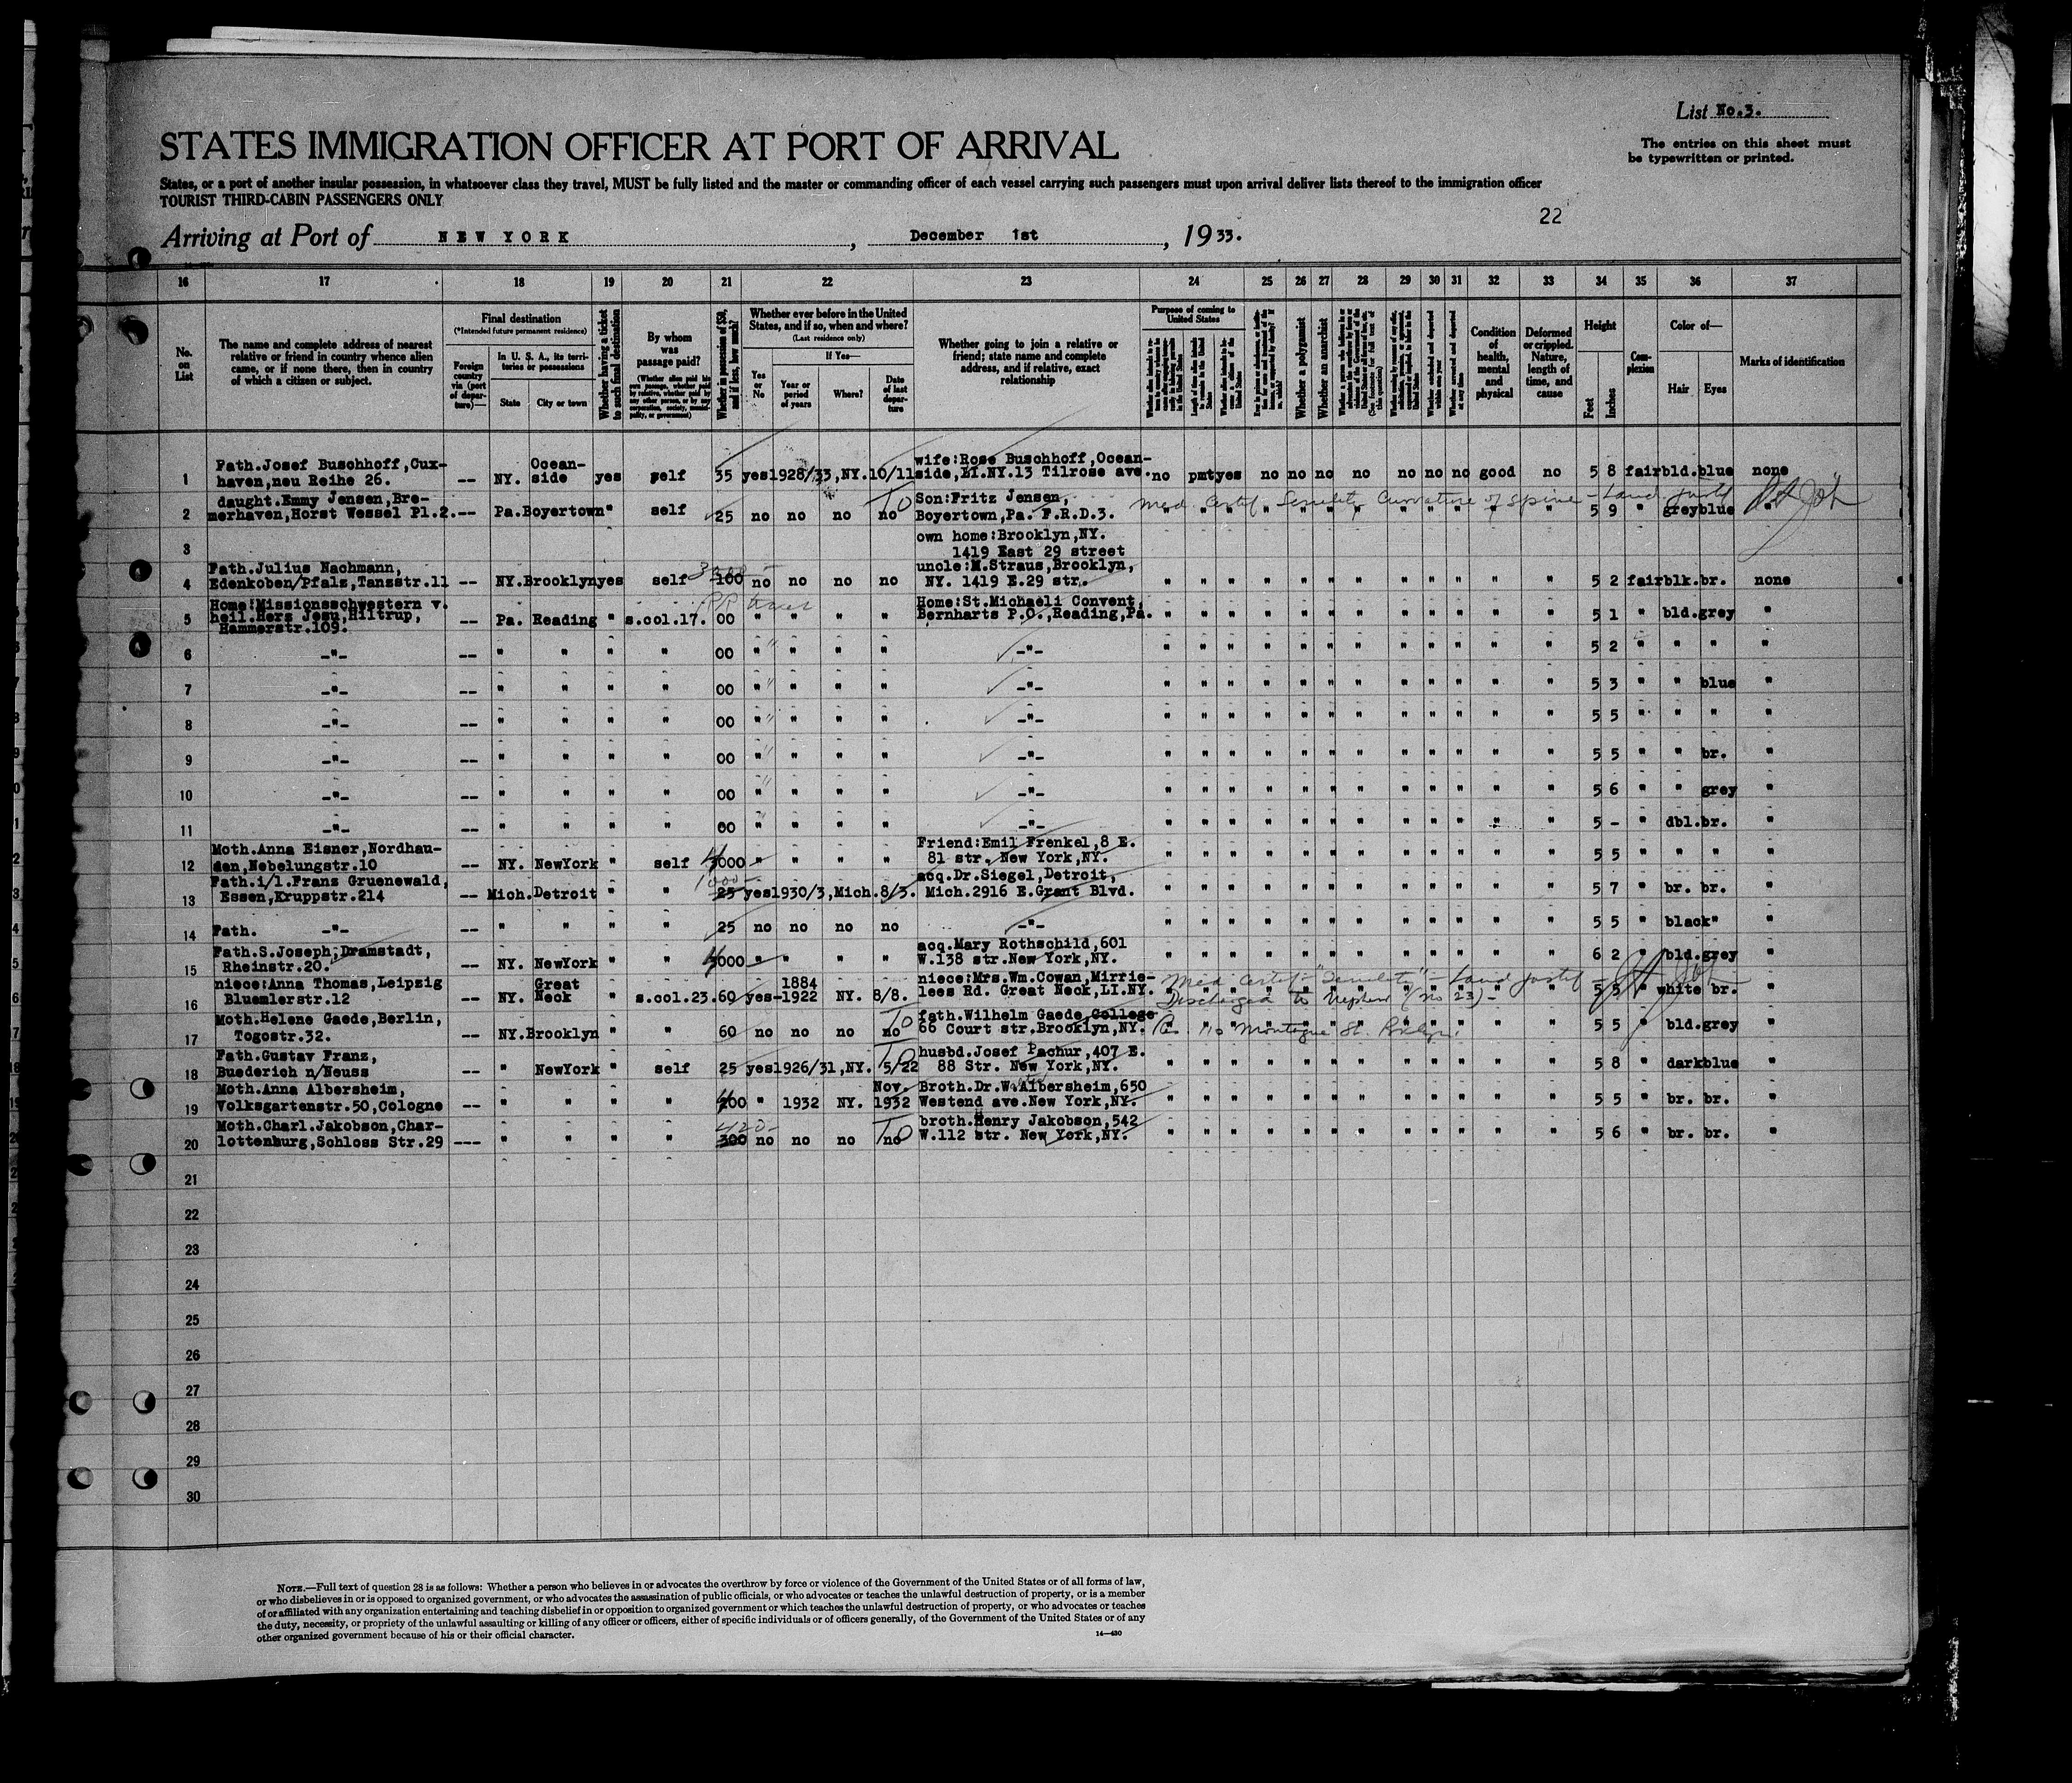 List No.3.
The entries on this sheet must
be typewritten or printed.
STATES IMMIGRATION OFFICER AT PORT OF ARRIVAL
States, or a port of another insular possession, in whatsoever class they travel, MUST be fully listed and the master or commanding officer of each vessel carrying such passengers must upon arrival deliver lists thereof to the immigration officer
TOURIST THIRD-CABIN PASSENGERS ONLY
22
Arriving at Port of NEW YORK, December 1st, 1933.
16 17 18 19 20 21 22 23 24 25 26 27 28 29 30 31 32 33 34 35 36 37
No. on List
The name and complete address of nearest relative or friend in country whence alien came, or if none there, then in country of which a citizen or subject.
Final destination
(*Intended future permanent residence)
Foreign country via (port of departure)—
In U. S. A., its territories or possessions
State City or town
Whether having a ticket to such final destination
By whom was passage paid?
Whether in possession of $50, and if less, how much?
Whether ever before in the United States, and if so, when and where?
(Last residence only)
Yes or No
If Yes—
Year or period of years Where? Date of last departure
Whether going to join a relative or friend; state name and complete address, and if relative, exact relationship
Purpose of coming to United States
Whether a polygamist
Whether an anarchist
Condition of health, mental and physical
Deformed or crippled. Nature, length of time, and cause
Height
Feet Inches
Complexion
Color of—
Hair Eyes
Marks of identification
1 Fath.Josef Buschhoff,Cux-
haven,neu Reihe 26. -- NY. Ocean-side yes self 35 yes 1928/33,NY. 10/11 wife:Rose Buschhoff,Ocean-
side,LI.NY.13 Tilrose ave. no pmt yes no no no no no no no good no 5 8 fair bld. blue none
2 daught.Emmy Jensen,Bre-
merhaven,Horst Wessel Pl.2. -- Pa. Boyertown " self 25 no no no no Son:Fritz Jensen,
Boyertown,Pa. F.R.D.3. Med Certif Senility Curvature of Spine - 5 9 " grey blue "
3 own home:Brooklyn,NY.
1419 East 29 street
4 Fath.Julius Nachmann,
Edenkoben/Pfalz,Tansstr.11 -- NY. Brooklyn yes self 100 no no no no uncle:M.Straus,Brooklyn,
NY. 1419 E.29 str. " " " " " " " " " " " " 5 2 fair blk. br. none
5 Home:Missionsschwestern v.
heil.Herz Jesu,Hiltrup,
Hammerstr.109. -- Pa. Reading " s.col.17. 00 " " " " Home:St.Michaeli Convent,
Bernharts P.O.,Reading,Pa. " " " " " " " " " " " " 5 1 " bld. grey "
6 -"- -- " " " " 00 " " " " -"- " " " " " " " " " " " " 5 2 " " " "
7 -"- -- " " " " 00 " " " " -"- " " " " " " " " " " " " 5 3 " " blue "
8 -"- -- " " " " 00 " " " " -"- " " " " " " " " " " " " 5 5 " " " "
9 -"- -- " " " " 00 " " " " -"- " " " " " " " " " " " " 5 5 " " br. "
10 -"- -- " " " " 00 " " " " -"- " " " " " " " " " " " " 5 6 " " grey "
11 -"- -- " " " " 00 " " " " -"- " " " " " " " " " " " " 5 - " dbl. br. "
12 Moth.Anna Eisner,Nordhau-
den,Nebelungstr.10 -- NY. NewYork " self " " " " Friend:Emil Frenkel,8 E.
81 str. New York,NY. " " " " " " " " " " " " 5 5 " " " "
13 Fath.i/l.Franz Gruenewald,
Essen,Kruppstr.214 -- Mich. Detroit " " 25 yes 1930/3,Mich. 8/3. acq.Dr.Siegel,Detroit,
Mich.2916 E.Grant Blvd. " " " " " " " " " " " " 5 7 " br. br. "
14 Fath. -"- -- " " " " 25 no no no no -"- " " " " " " " " " " " " 5 5 " black " "
15 Fath.S.Joseph,Dramstadt,
Rheinstr.20. -- NY. NewYork " " " " " " acq.Mary Rothschild,601
W.138 str.New York,NY. " " " " " " " " " " " " 6 2 " bld. grey "
16 niece:Anna Thomas,Leipzig
Bluemlerstr.12 -- NY. Great Neck " s.col.23. 60 yes 1884-1922 NY. 8/8. niece:Mrs.Wm.Cowan,Mirrie-
lees Rd. Great Neck,LI.NY. Med Certif - "Senility" -
Discharged to Nephew (no 23) - 5 5 " white br. "
17 Moth.Helene Gaede,Berlin,
Togostr.32. -- NY. Brooklyn " " 60 no no no no fath.Wilhelm Gaede,College
66 Court str.Brooklyn,NY. 110 Montague St. Bklyn. 5 5 " bld. grey "
18 Fath.Gustav Franz,
Buederich n/Neuss -- " NewYork " self 25 yes 1926/31,NY. 5/22 husbd.Josef Pachur,407 E.
88 Str. New York,NY. " " " " " " " " " " " " 5 8 " dark blue "
19 Moth.Anna Albersheim,
Volksgartenstr.50,Cologne -- " " " " " 1932 NY. Nov. 1932 Broth.Dr.W.Albersheim,650
Westend ave.New York,NY. " " " " " " " " " " " " 5 5 " br. br. "
20 Moth.Charl.Jakobson,Char-
lottenburg,Schloss Str.29 --- " " " " 300 no no no no broth.Henry Jakobson,542
W.112 str. New York,NY. " " " " " " " " " " " " 5 6 " br. br. "
21
22
23
24
25
26
27
28
29
30
NOTE.—Full text of question 28 is as follows: Whether a person who believes in or advocates the overthrow by force or violence of the Government of the United States or of all forms of law,
or who disbelieves in or is opposed to organized government, or who advocates the assassination of public officials, or who advocates or teaches the unlawful destruction of property, or is a member
of or affiliated with any organization entertaining and teaching disbelief in or opposition to organized government or which teaches the unlawful destruction of property, or who advocates or teaches
the duty, necessity, or propriety of the unlawful assaulting or killing of any officer or officers, either of specific individuals or of officers generally, of the Government of the United States or of any
other organized government because of his or their official character.
14—430